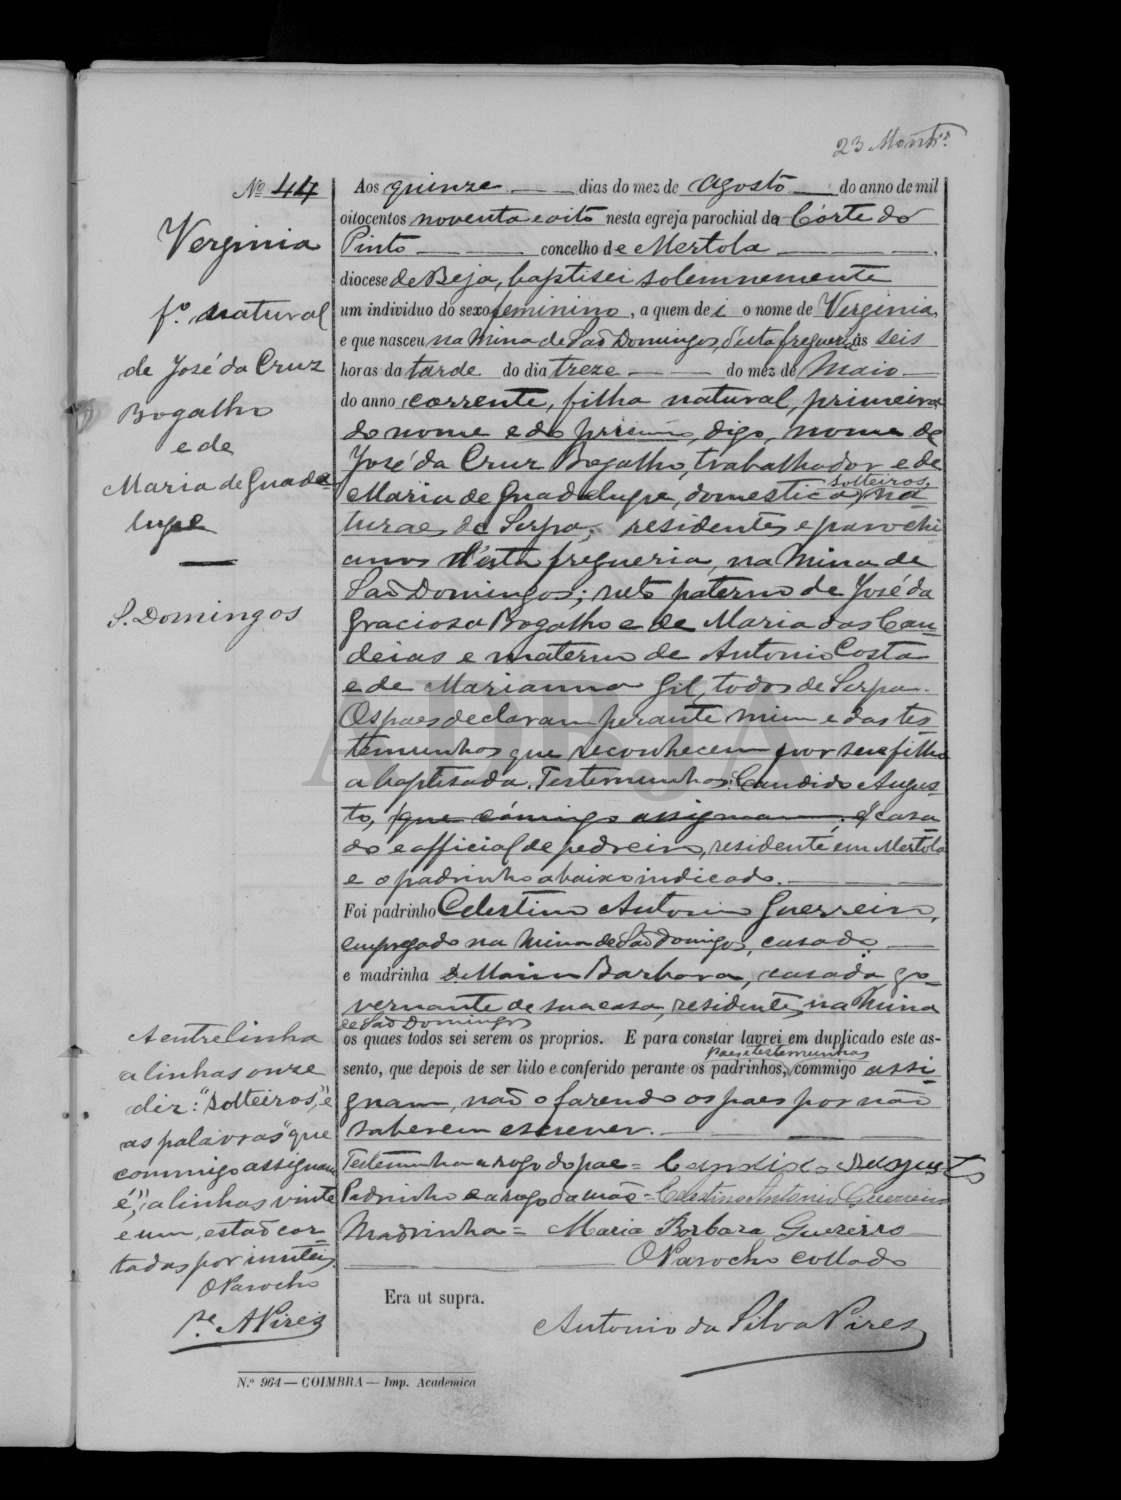 23 Montro.
Nº 44
Verginia
fª. natural
de José da Cruz
Bogalho
e de
Maria de Guada-
lupe
S. Domingos
Aos quinze dias do mez de Agosto do anno de mil
oitocentos noventa e oito nesta egreja parochial da Côrte do
Pinto concelho de Mertola,
diocese de Beja, baptisei solemnemente
um individuo do sexo feminino, a quem dei o nome de Verginia,
e que nasceu na Mina de São Domingos, d'esta fregueria ás seis
horas da tarde do dia treze do mez de Maio
do anno corrente, filha natural, primeira
do nome e do primeiro, digo, nome de
José da Cruz Bogalho, trabalhador e de
Maria de Guadalupe, domestica, solteiros, na-
turaes de Serpa, residentes e parochi
anos d'esta fregueria, na Mina de
São Domingos; neto paterno de José da
Graciosa Bogalho e de Maria das Can-
deias e materno de Antonio Costa
e de Marianna Gil, todos de Serpa.
Os paes declaram perante mim e das tes
temunhas que reconhecem por sua filha
a baptisada. Testemunhas: Candido Augus-
to, (que cómmigo assignam é) casa
do e official de pedreiro, residente em Mertola
e o padrinho abaixo indicado.
Foi padrinho Celestino Antonio Guerreiro,
empregado na Mina de São Domigos, casado
e madrinha D. Maria Barbara, casada, go-
vernante de sua casa, residentes na Mina
de São Domingos
os quaes todos sei serem os proprios. E para constar lavrei em duplicado este as-
sento, que depois de ser lido e conferido perante os padrinhos, paes e testemunhas commigo assi-
gnam, não o fazendo os paes por não
saberem escrever.
Testemunha a rogo do pae = Candido Augusto
Padrinho e a rogo da mãe = Celestino Antonio Guerreiro
Madrinha = Maria Barbara Guerreiro
O Parocho collado
Era ut supra.
Antonio da Silva Pires
A entrelinha
a linhas onze
diz: "solteiros," e
as palavras "que
commigo assignam
é", a linhas vinte
e um, estão cor-
tadas por inuteis
O Parocho
Pe. A Pires
N.º 964 — COIMBRA — Imp. Academica
ADBJA